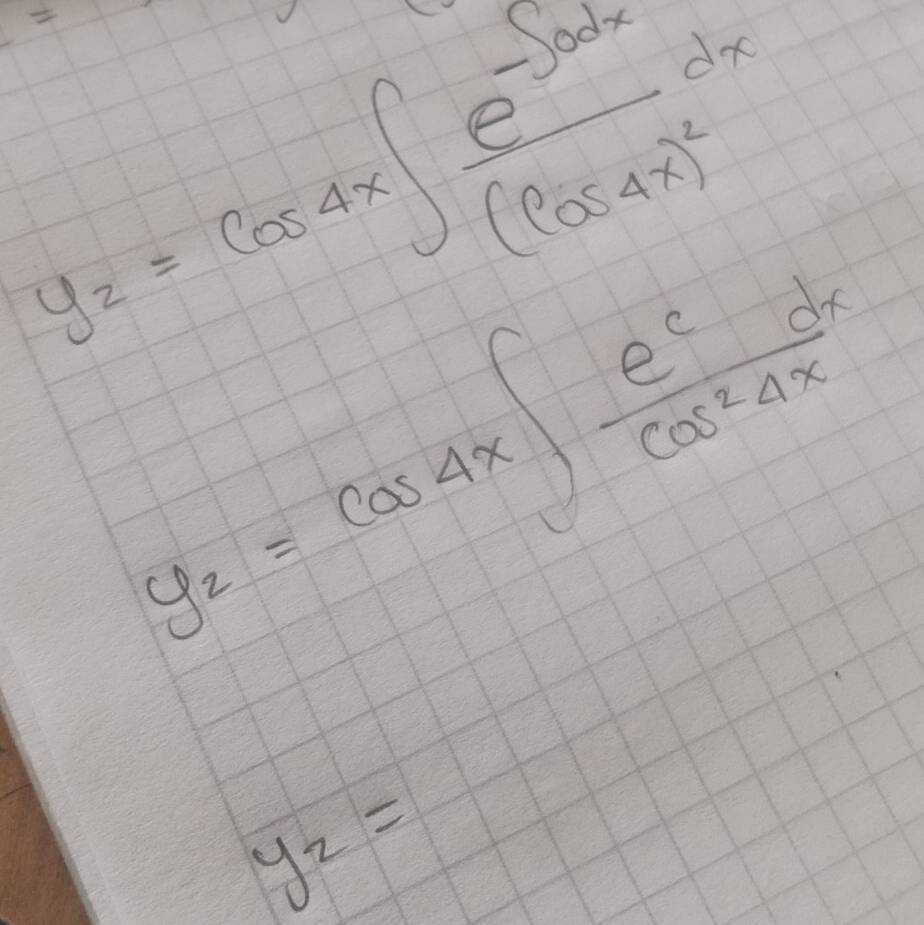 =
y₂ = cos 4x ∫ e^(-∫0dx) / (cos 4x)² dx
y₂ = cos 4x ∫ e^c dx / cos² 4x
y₂ =